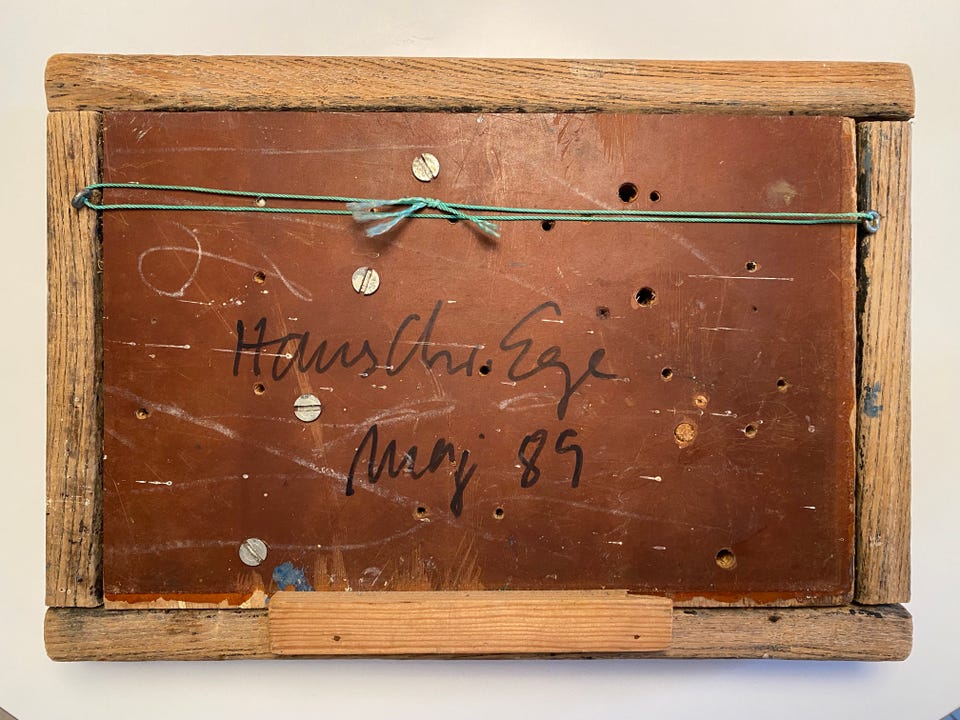 Hans Chr. Ege
Maj 89